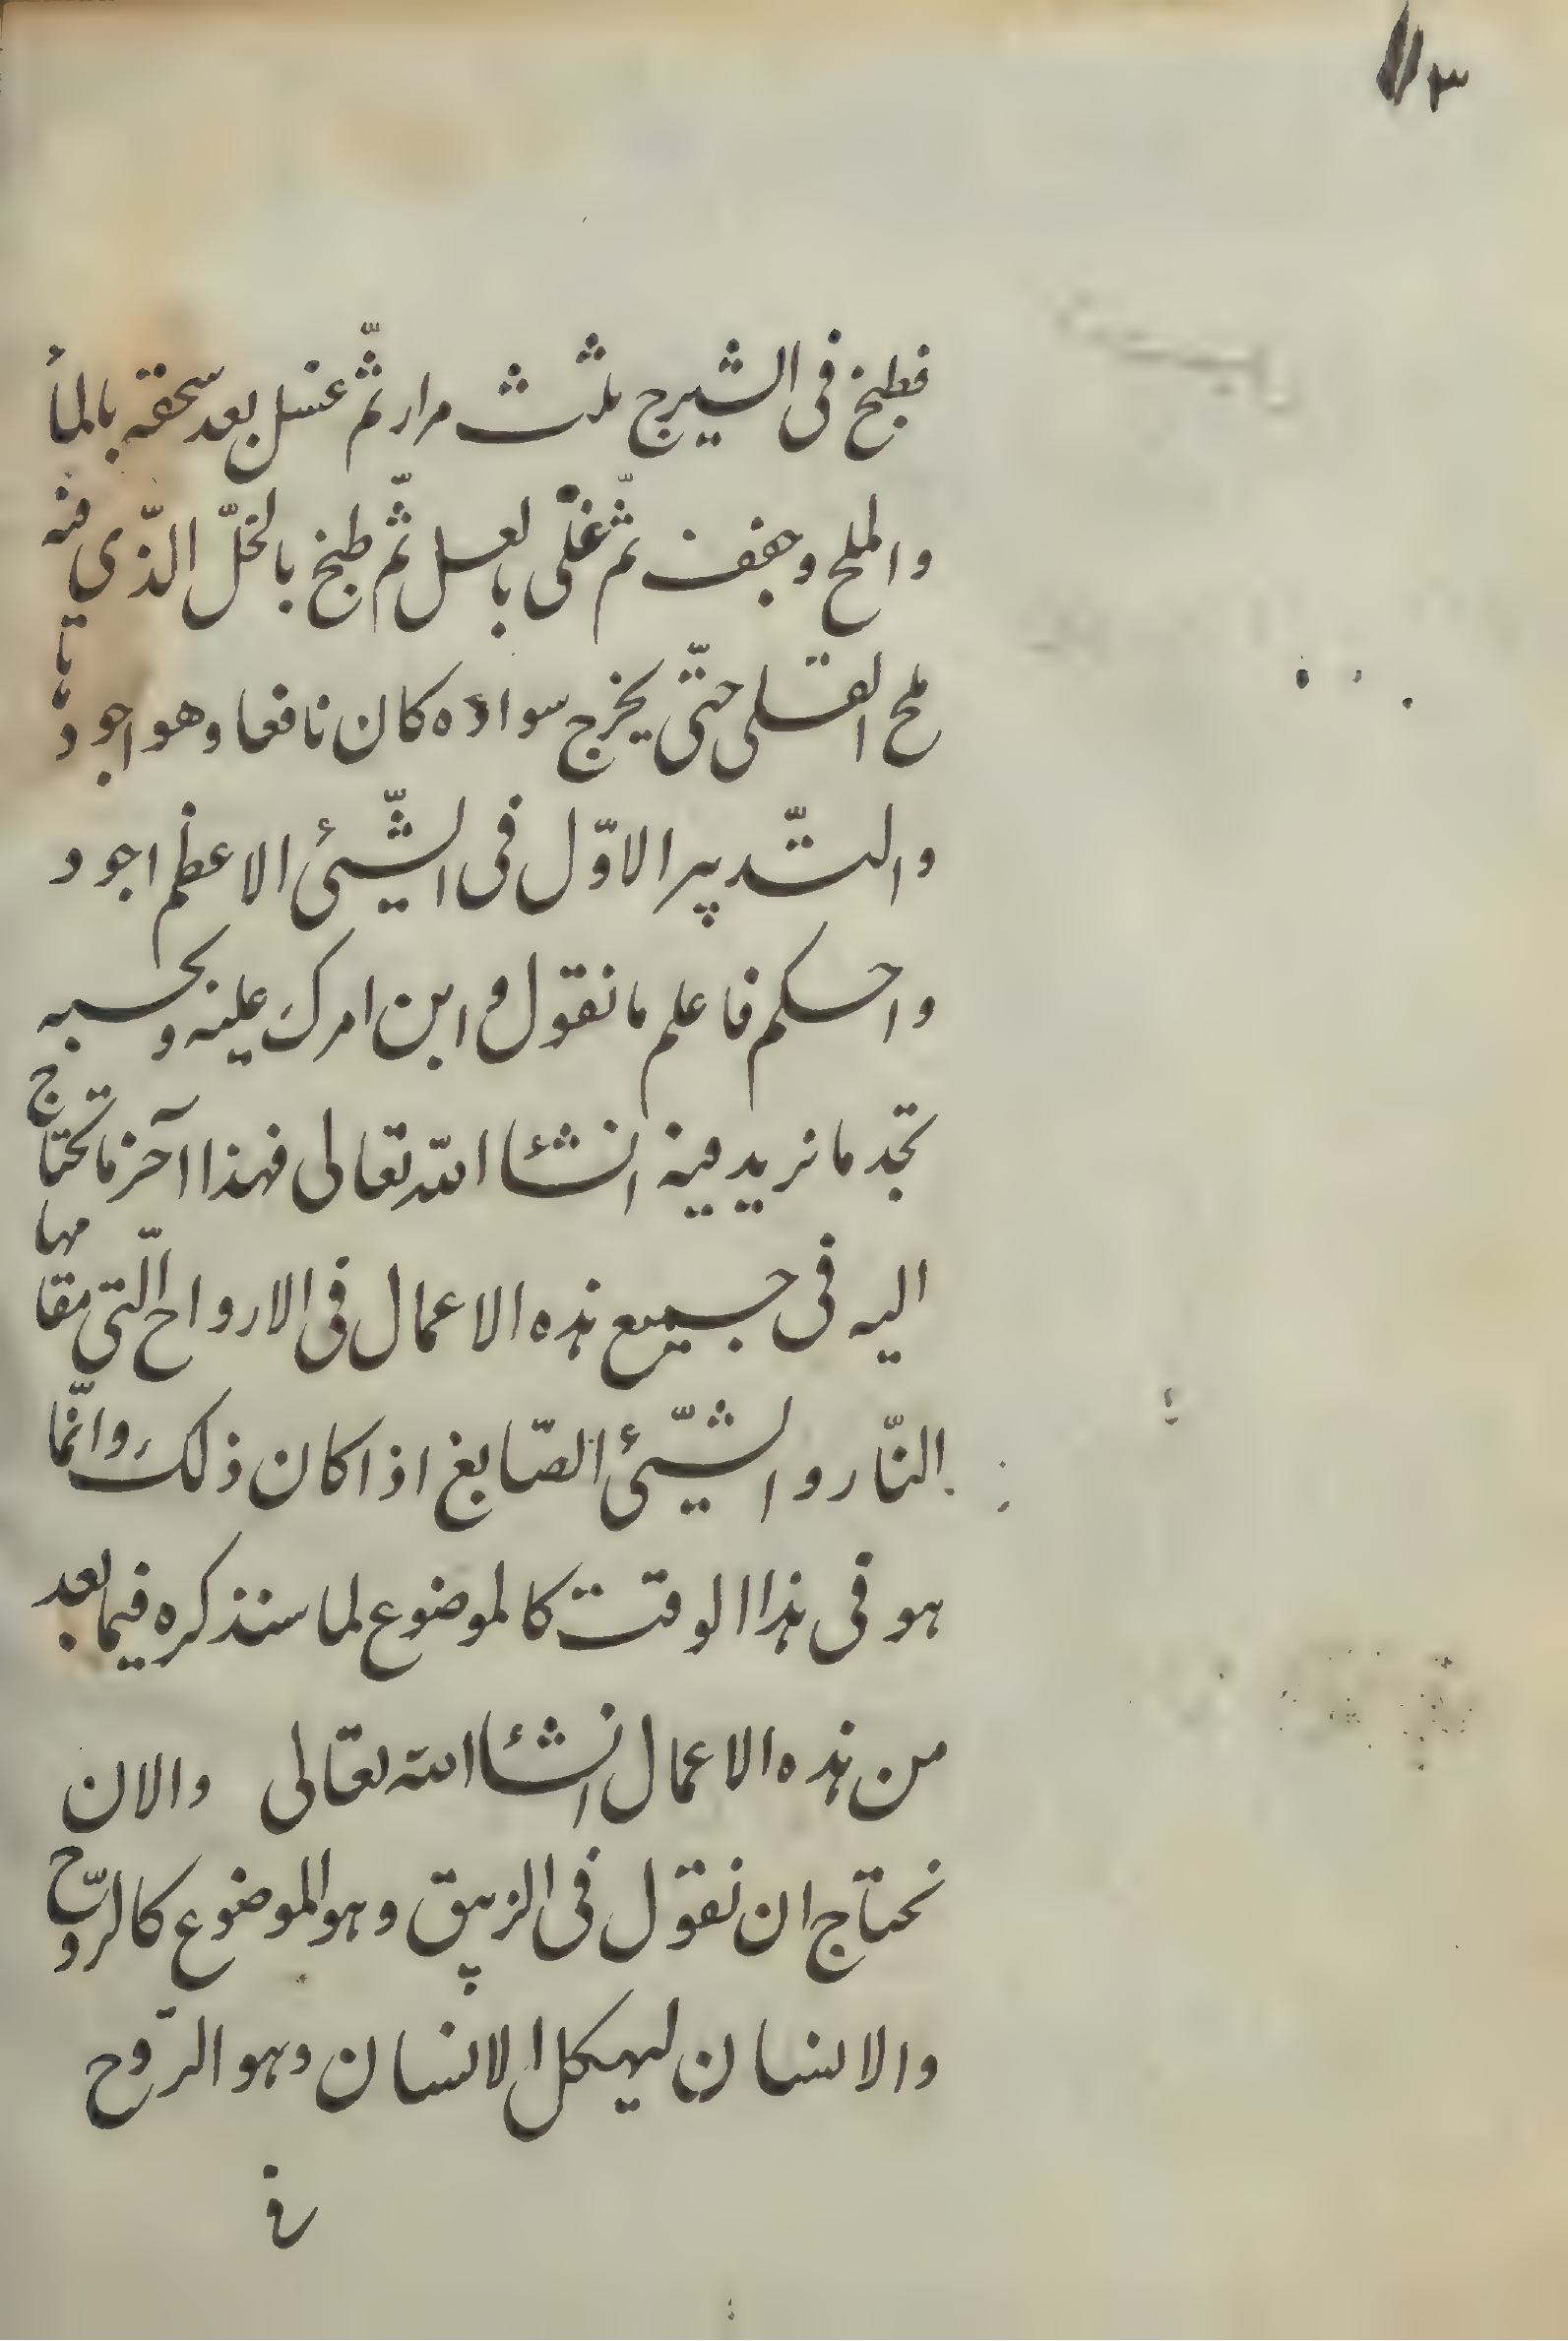 فطبخ فى الشيرج ثلث مرار ثمّ غسل بعد سحقه بالمأ
والملح وجفف ثمّ غلّى بالعسل ثمّ طبخ بالخلّ الذّى فيه
ملح القلى حتّى يخرج سواده كان نافعا وهو اجود
والتّدبير الاوّل فى الشّيئ الاعظم اجود
واحكم فاعلم ما نقول وابن امرك عليه وبحسبه
تجد ما نريد فيه انشئا الله تعالى فهذا اآخر ما تحتاج
اليه فى جميع هذه الاعمال فى الارواح الّتى مقامها
النّار والشّيئ الصّابغ اذا كان ذلك وانّما
هو فى هذا الوقت كالموضوع لما سنذكره فيما بعد
من هذه الاعمال انشئا الله تعالى والان
نحتاج ان نقول فى الزيبق وهو الموضوع كالرّوح
والانسان ليهيكل الانسان وهو الرّوح
فى